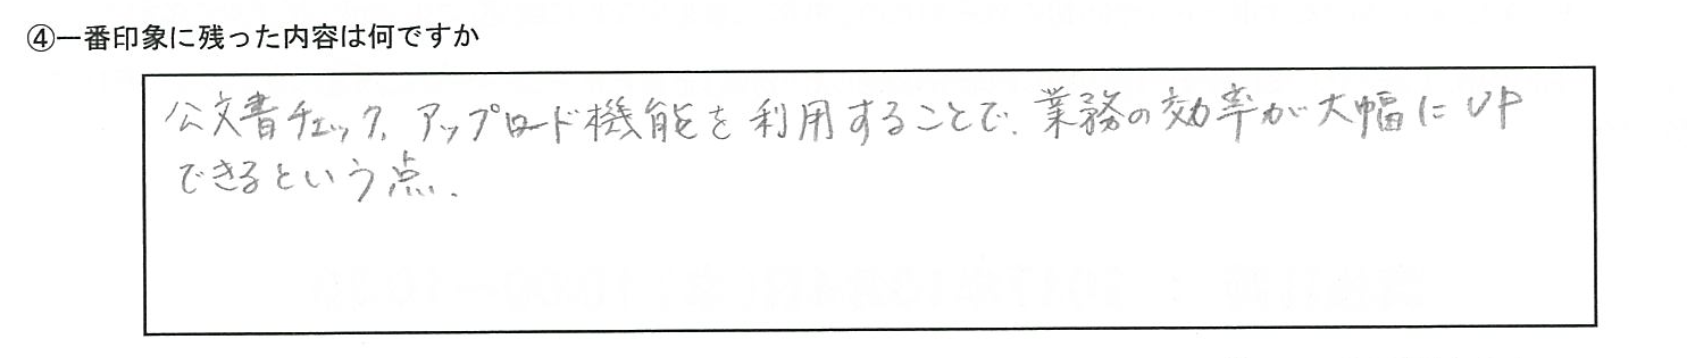 ④一番印象に残った内容は何ですか
公文書チェック、アップロード機能を利用することで、業務の効率が大幅にUP
できるという点.